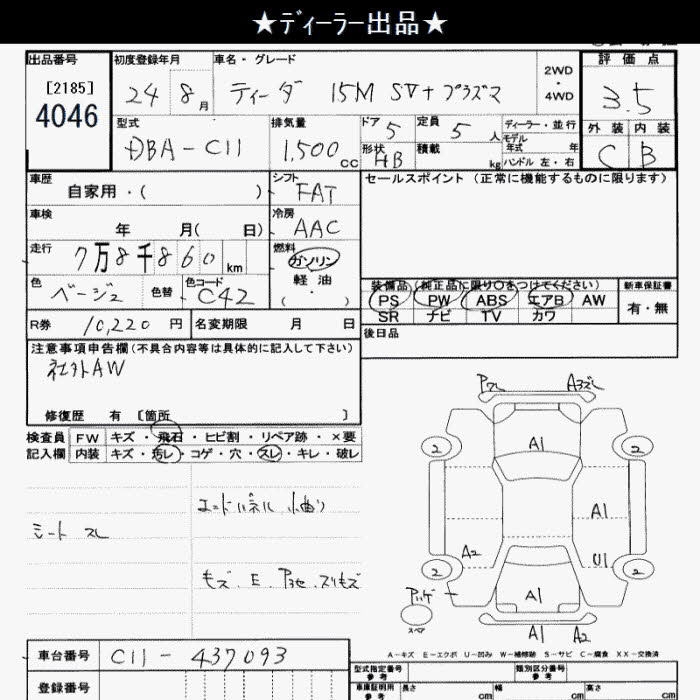 ★ディーラー出品★
出品番号
[2185]
4046
初度登録年月
24 8月
車名・グレード
ティーダ 15M SV+プラズマ
2WD
・
4WD
評価点
3.5
外装 内装
C B
型式
DBA-C11
排気量
1,500cc
ドア 5
定員 5人
形状 HB
積載 kg
ディーラー・並行
モデル年式 年
ハンドル 左・右
車歴
自家用・( )
シフト
FAT
セールスポイント (正常に機能するものに限ります)
車検
年 月( 日)
冷房
AAC
走行
7万8千860 km
燃料
ガソリン
軽油
( ・ )
色
ベージュ
色替
色コード
C42
装備品 (純正品に限り○をつけてください)
PS PW ABS エアB AW
SR ナビ TV カワ
新車保証書
有・無
R券 10,220円
名変期限 月 日
後日品
注意事項申告欄(不具合内容等は具体的に記入して下さい)
社外AW
修復歴 有 [箇所 ]
検査員 FW キズ・飛石・ヒビ割・リペア跡・×要
記入欄 内装 キズ・汚レ・コゲ・穴・スレ・キレ・破レ
エンドパネル 小曲り
シート スレ
A1
2 2
A1
A2 U1
2 2
A1
スペア
A1 A2
A-キズ E-エクボ U-凹み W-補修跡 S-サビ C-腐食 XX-交換済
車台番号 C11-437093
登録番号
型式指定番号
参考
類別区分番号
参考
車庫証明用
参考
長さ cm
幅 cm
高さ cm